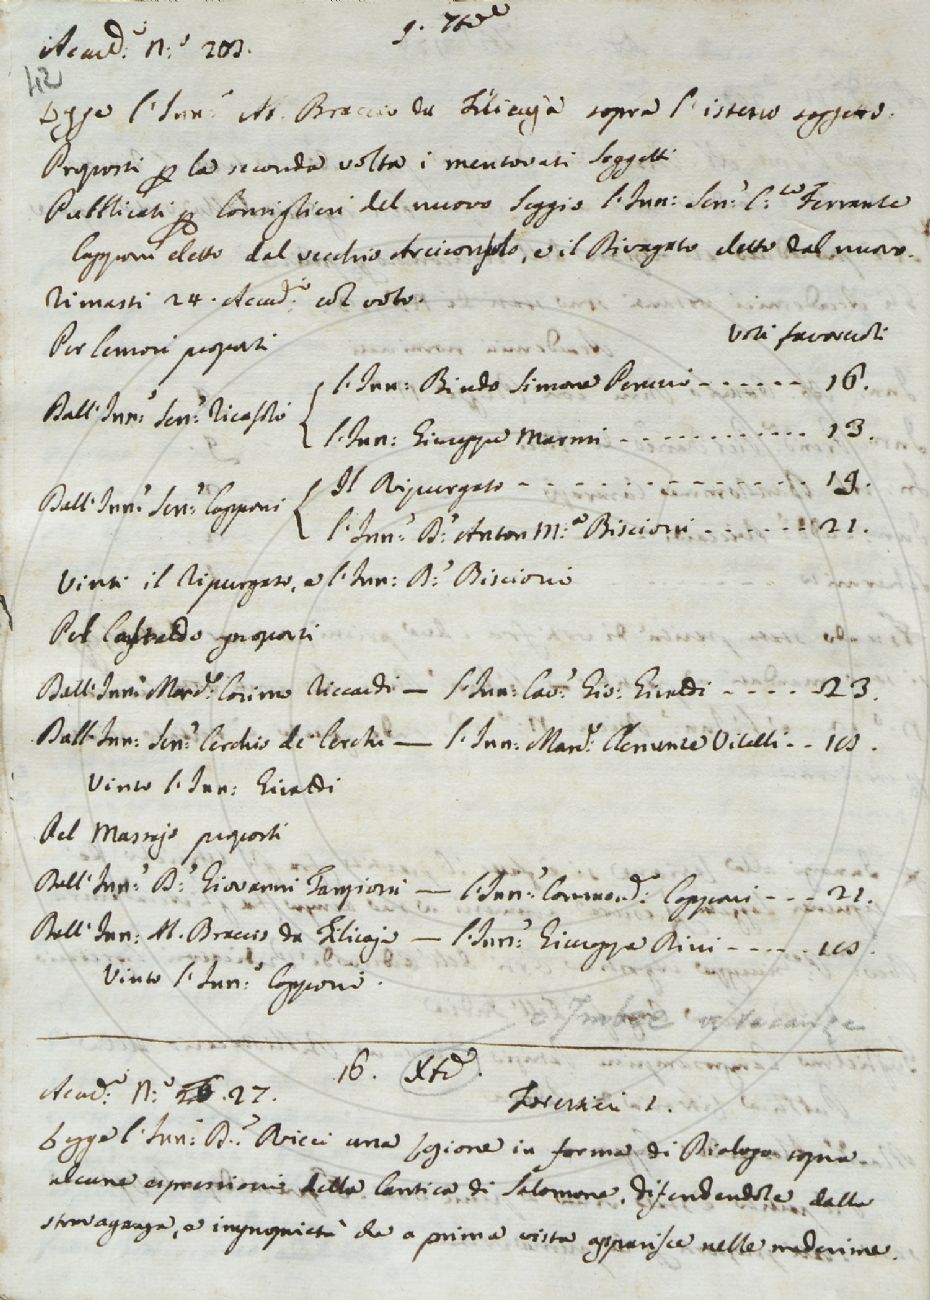 9. 7bre
Accad.i N.o 203.
42
Legge l'Inn.o A. Braccio da Filicaja sopra l'istesso soggetto.
Proposti p la seconda volta i mentovati Soggetti
Pubblicati p Consiglieri del nuovo Seggio l'Inn: Sen.r C.te Ferrante
Capponi eletto dal vecchio Arciconsolo, e il Rivagato eletto dal nuovo.
Rimasti 24. Accad.i col voto.
Per Censori proposti
Voti favorevoli
Dall'Inn.o Sen.r Ricasoli { l'Inn: Bindo Simone Peruzzi ------ 16.
l'Inn: Giuseppe Marmi ------------ 13.
Dall'Inn.o Sen.r Capponi { Il Ripurgato ------------- 19.
l'Inn.o D.r Anton M.a Biscioni ------ 21.
Vinti il Ripurgato, e l'Inn: D.r Biscioni
Pel Castaldo proposti
Dall'Inn.o March.e Cosimo Riccardi — l'Inn: Cav.r Gio: Giraldi ----- 23.
Dall'Inn: Sen.r Cerchio de Cerchi — l'Inn: March.e Clemente Vitelli -- 10.
Vinto l'Inn: Giraldi
Pel Massajo proposti
Dall'Inn.o D.r Giovanni Targioni — l'Inn.o Commend.r Capponi --- 21.
Dall'Inn: A. Braccio da Filicaja — l'Inn.o Giuseppe Bini ---- 10.
Vinto l'Inn.o Capponi.
e Imbre vacanze
16. Xbre.
Accad.i N.o 27.
Forensici 1.
Legge l'Inn.o D.r Ricci una Lezione in forma di Dialogo sopra
alcune espressioni della Cantica di Salomone, difendendole dalla
stravaganza, e improprietà che a prima vista apparisce nelle medesime.